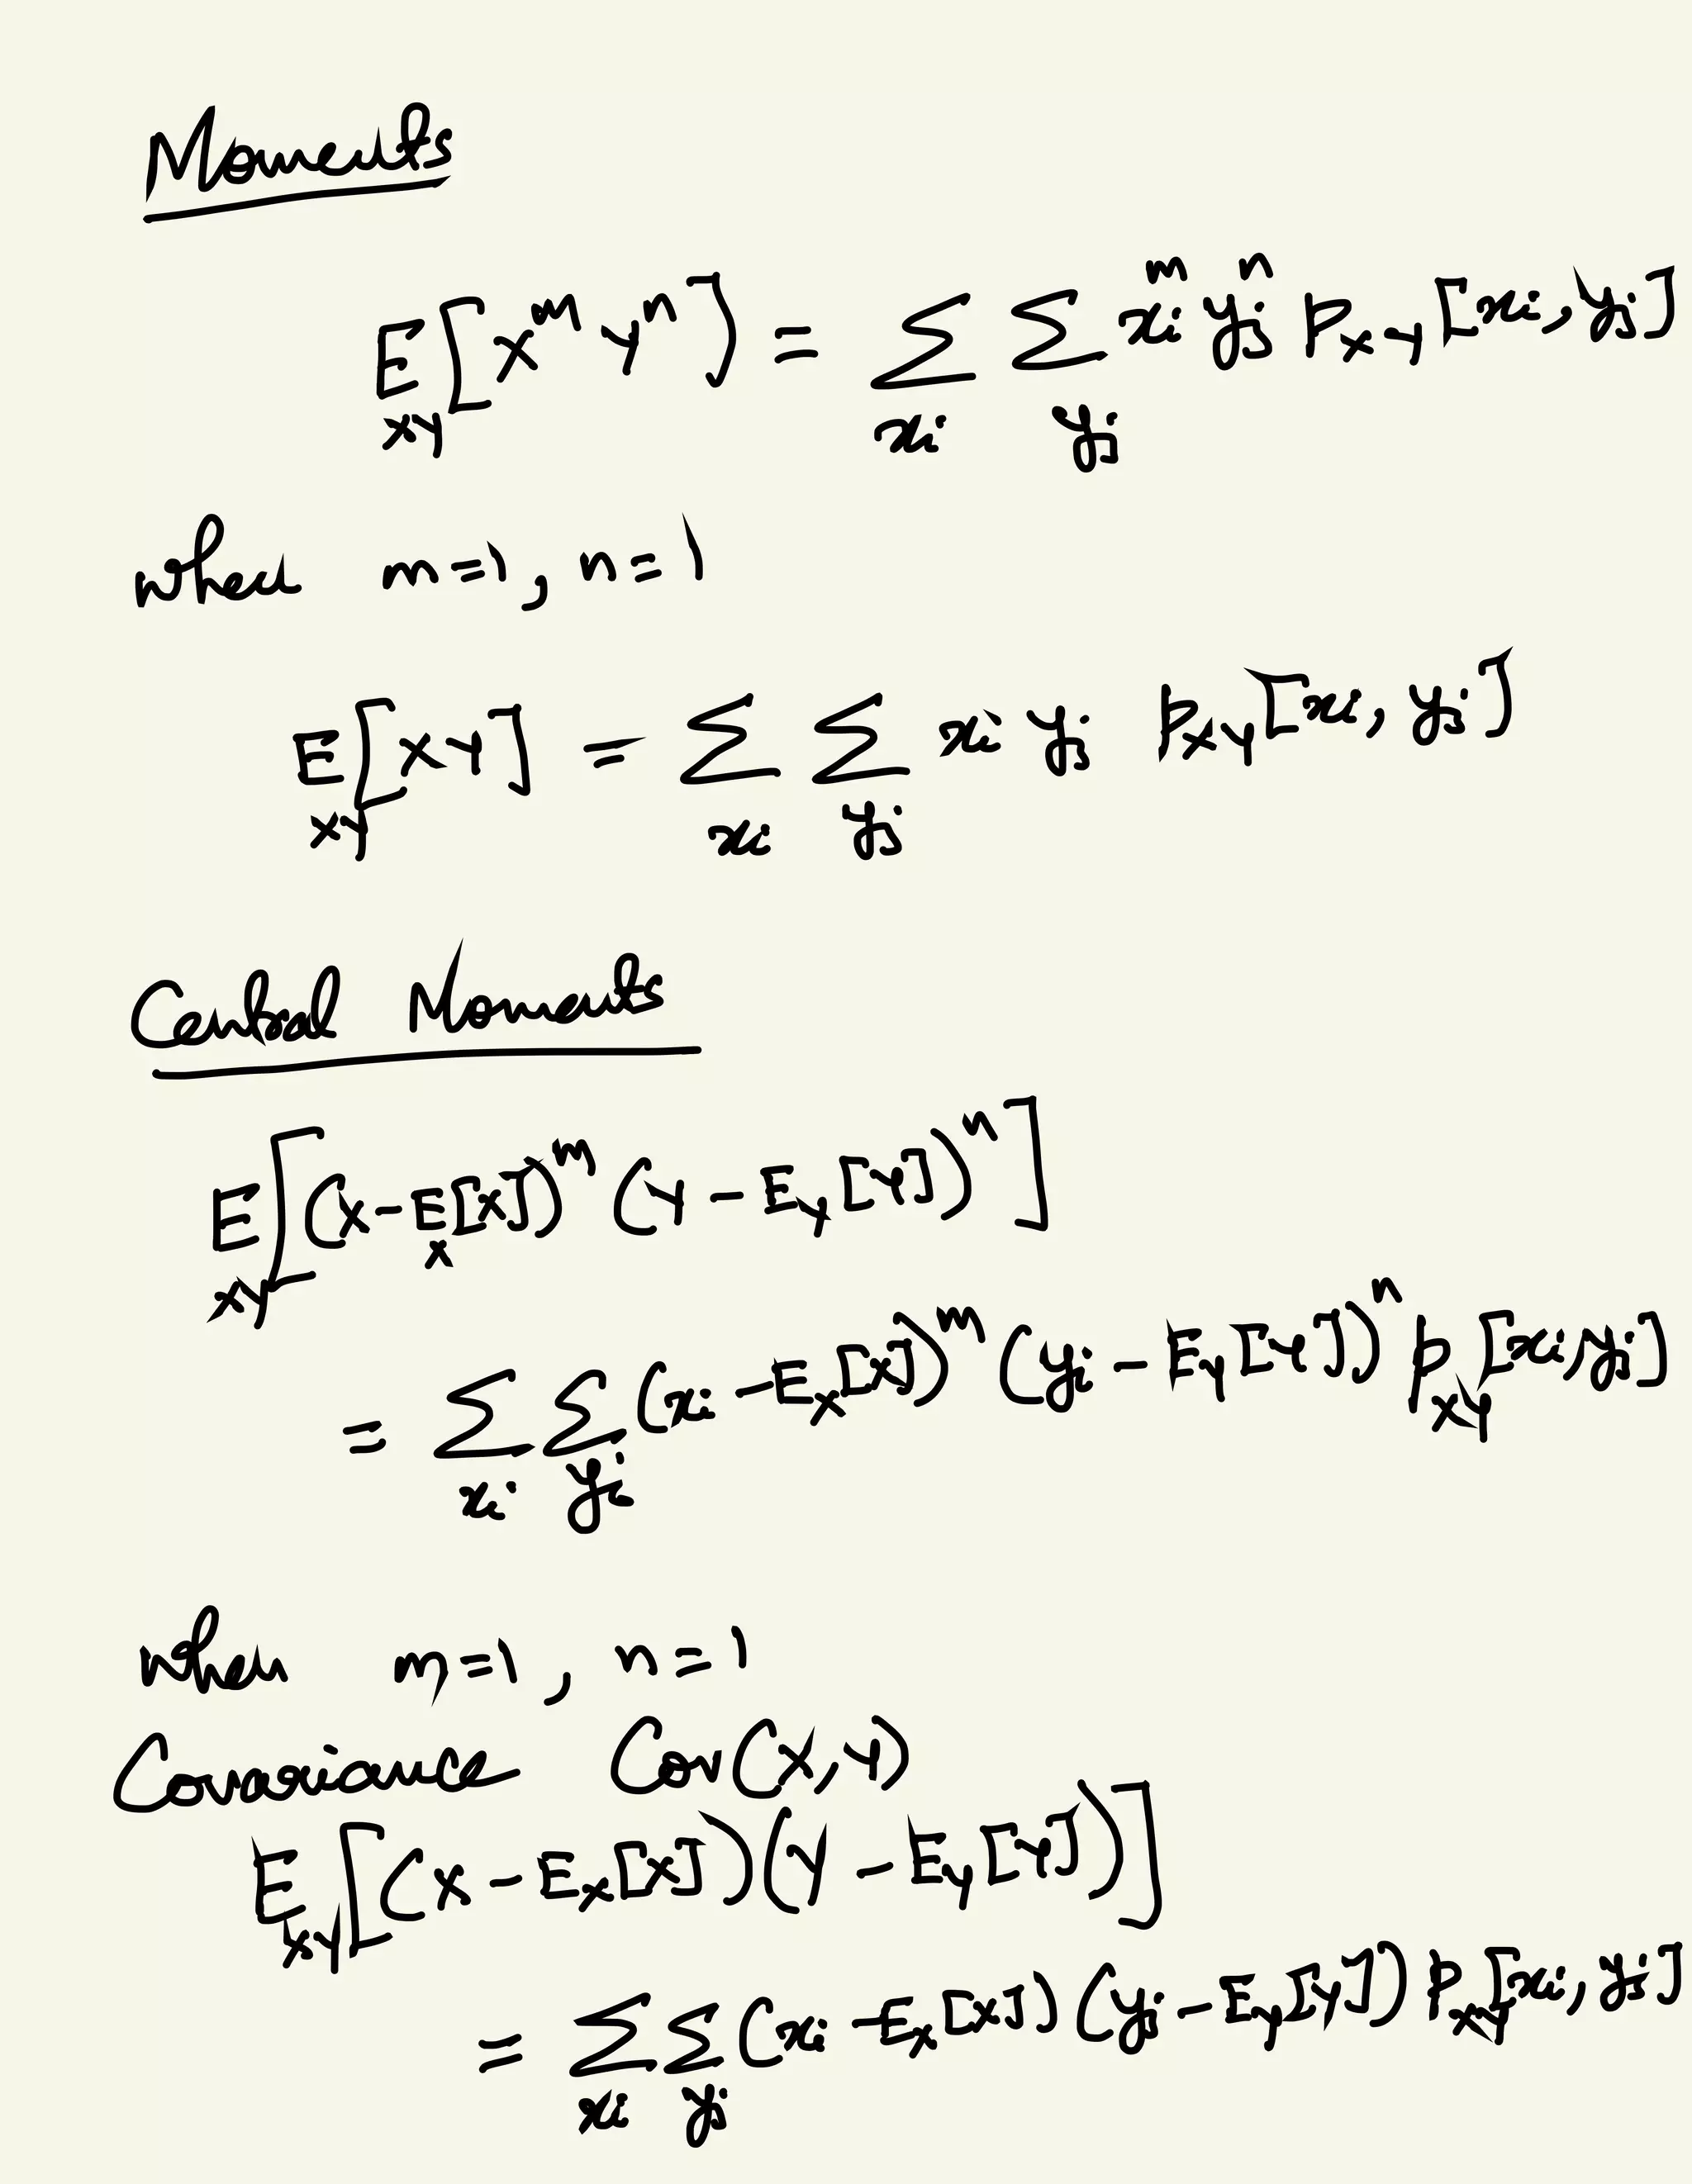 Moments
E_{XY}[X^m Y^n] = \sum_{x_i} \sum_{y_j} x_i^m y_j^n p_{XY}[x_i, y_j]
when m=1, n=1
E_{XY}[XY] = \sum_{x_i} \sum_{y_j} x_i y_j p_{XY}[x_i, y_j]
Central Moments
E_{XY}[(X-E_X[X])^m (Y-E_Y[Y])^n]
= \sum_{x_i} \sum_{y_i} (x_i - E_X[X])^m (y_i - E_Y[Y])^n p_{XY}[x_i, y_j]
when m=1, n=1
Covariance Cov(X,Y)
E_{XY}[(X-E_X[X])(Y-E_Y[Y])]
= \sum_{x_i} \sum_{y_j} (x_i - E_X[X])(y_j - E_Y[Y]) p_{XY}[x_i, y_j]